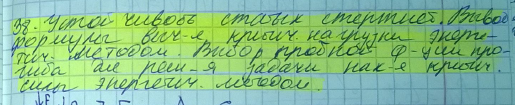 98. Устойчивость сжатых стержней. Вывод
формулы выч-я критич. нагрузки энерге-
тич. методом. Выбор пробной ф-ции про-
гиба для реш-я задачи нах-я критич.
силы энергетич. методом.